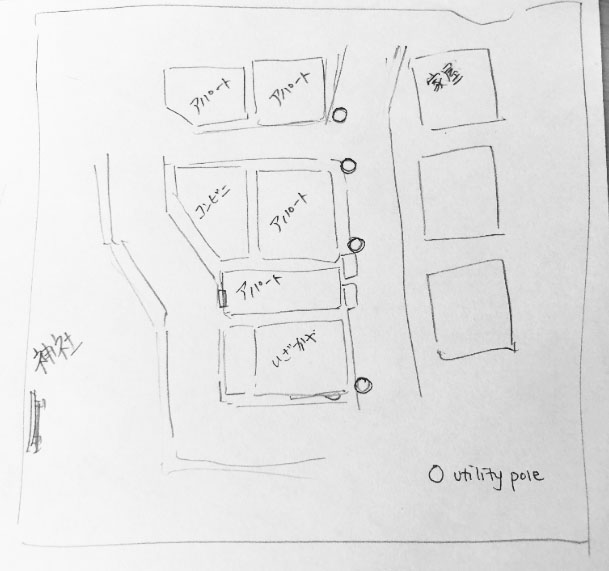 アパート
アパート
家屋
コンビニ
アパート
アパート
いざかや
神社
utility pole